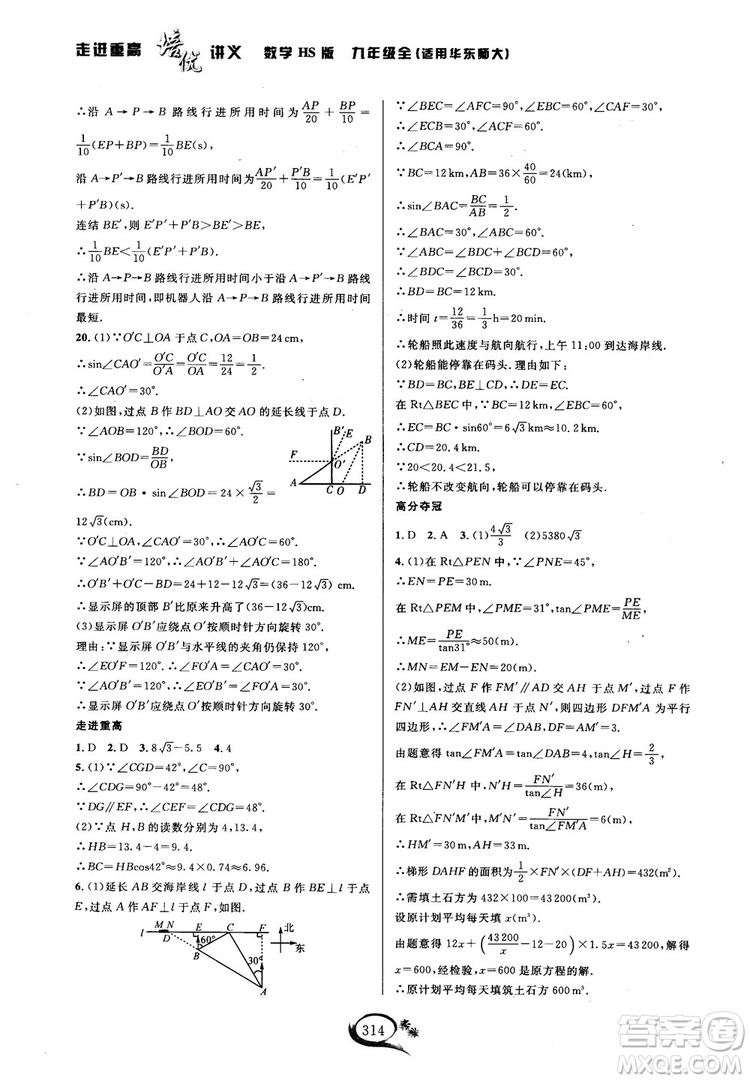 走进重高 培优 讲义 数学 HS 版 九年级全(适用华东师大)
∴沿 A→P→B 路线行进所用时间为 AP/20 + BP/10 =
1/10(EP+BP)=1/10 BE(s),
沿 A→P′→B 路线行进所用时间为 AP′/20 + P′B/10 = 1/10(E′P′
+P′B)(s).
连结 BE′,则 E′P′+P′B>BE′>BE,
∴1/10 BE<1/10(E′P′+P′B),
∴沿 A→P→B 路线行进所用时间小于沿 A→P′→B 路线
行进所用时间,即机器人沿 A→P→B 路线行进所用时间
最短.
20. (1)∵O′C⊥OA 于点 C,OA=OB=24 cm,
∴sin∠CAO′=O′C/O′A=O′C/OA=12/24=1/2,
∴∠CAO′=30°.
(2)如图,过点 B 作 BD⊥AO 交 AO 的延长线于点 D.
∵∠AOB=120°,∴∠BOD=60°.
∵sin∠BOD=BD/OB,
∴BD=OB·sin∠BOD=24×√3/2=
12√3(cm).
B′ E B F O′ A C O D
∵O′C⊥OA,∠CAO′=30°,∴∠AO′C=60°.
∵∠AO′B′=120°,∴∠AO′B′+∠AO′C=180°.
∴O′B′+O′C−BD=24+12−12√3=36−12√3(cm),
∴显示屏的顶部 B′比原来升高了(36−12√3)cm.
(3)显示屏 O′B′应绕点 O′按顺时针方向旋转 30°.
理由:∵显示屏 O′B′与水平线的夹角仍保持 120°,
∴∠EO′F=120°,∴∠FO′A=∠CAO′=30°.
∵∠AO′B′=120°,∴∠EO′B′=∠FO′A=30°,
∴显示屏 O′B′应绕点 O′按顺时针方向旋转 30°.
走进重高
1. D 2. D 3. 8√3−5.5 4. 4
5. (1)∵∠CGD=42°,∠C=90°,
∴∠CDG=90°−42°=48°.
∵DG∥EF,∴∠CEF=∠CDG=48°.
(2)∵点 H,B 的读数分别为 4,13.4,
∴HB=13.4−4=9.4(m),
∴BC=HBcos42°≈9.4×0.74≈6.96.
6. (1)延长 AB 交海岸线 l 于点 D,过点 B 作 BE⊥l 于点
E,过点 A 作 AF⊥l 于点 F,如图.
l M N E C F 北
D 60° 东
B 30°
A
∵∠BEC=∠AFC=90°,∠EBC=60°,∠CAF=30°,
∴∠ECB=30°,∠ACF=60°.
∴∠BCA=90°.
∵BC=12 km,AB=36×40/60=24(km),
∴sin∠BAC=BC/AB=1/2.
∴∠BAC=30°,∴∠ABC=60°.
∵∠ABC=∠BDC+∠BCD=60°,
∴∠BDC=∠BCD=30°,
∴BD=BC=12 km.
∴时间 t=12/36=1/3 h=20 min.
∴轮船照此速度与航向航行,上午 11:00 到达海岸线.
(2)轮船能停靠在码头. 理由如下:
∵BD=BC,BE⊥CD,∴DE=EC.
在 Rt△BEC 中,∵BC=12 km,∠BCE=30°,
∴EC=BC·sin60°=6√3 km≈10.2 km.
∴CD=20.4 km.
∵20<20.4<21.5,
∴轮船不改变航向,轮船可以停靠在码头.
高分夺冠
1. D 2. A 3. (1)4√3/3 (2)5380√3
4. (1)在 Rt△PEN 中,∵∠PNE=45°,
∴EN=PE=30 m.
在 Rt△PEM 中,∵∠PME=31°,tan∠PME=PE/ME,
∴ME=PE/tan31°≈50(m).
∴MN=EM−EN=20(m).
(2)如图,过点 F 作 FM′∥AD 交 AH 于点 M′,过点 F 作
FN′⊥AH 交直线 AH 于点 N′,则四边形 DFM′A 为平行
四边形,∴∠FM′A=∠DAB,DF=AM′=6 m.
由题意得 tan∠FM′A=tan∠DAB=4,tan∠H=2/3.
在 Rt△FN′H 中,N′H=FN′/tan∠H=36(m).
在 Rt△FN′M′中,M′N′=FN′/tan∠FM′A=6(m).
∴HM′=30 m.∴AH=36 m.
∴梯形 DAHF 的面积为 1/2×FN′×(DF+AH)=432(m²).
∴需填土石方为 432×100=43 200(m³).
设原计划平均每天填 x(m³).
由题意得 12x+(43 200/x−12−20)×1.5x=43 200,解得
x=600,经检验,x=600 是原方程的解.
∴原计划平均每天填筑土石方 600 m³.
314
答案圈